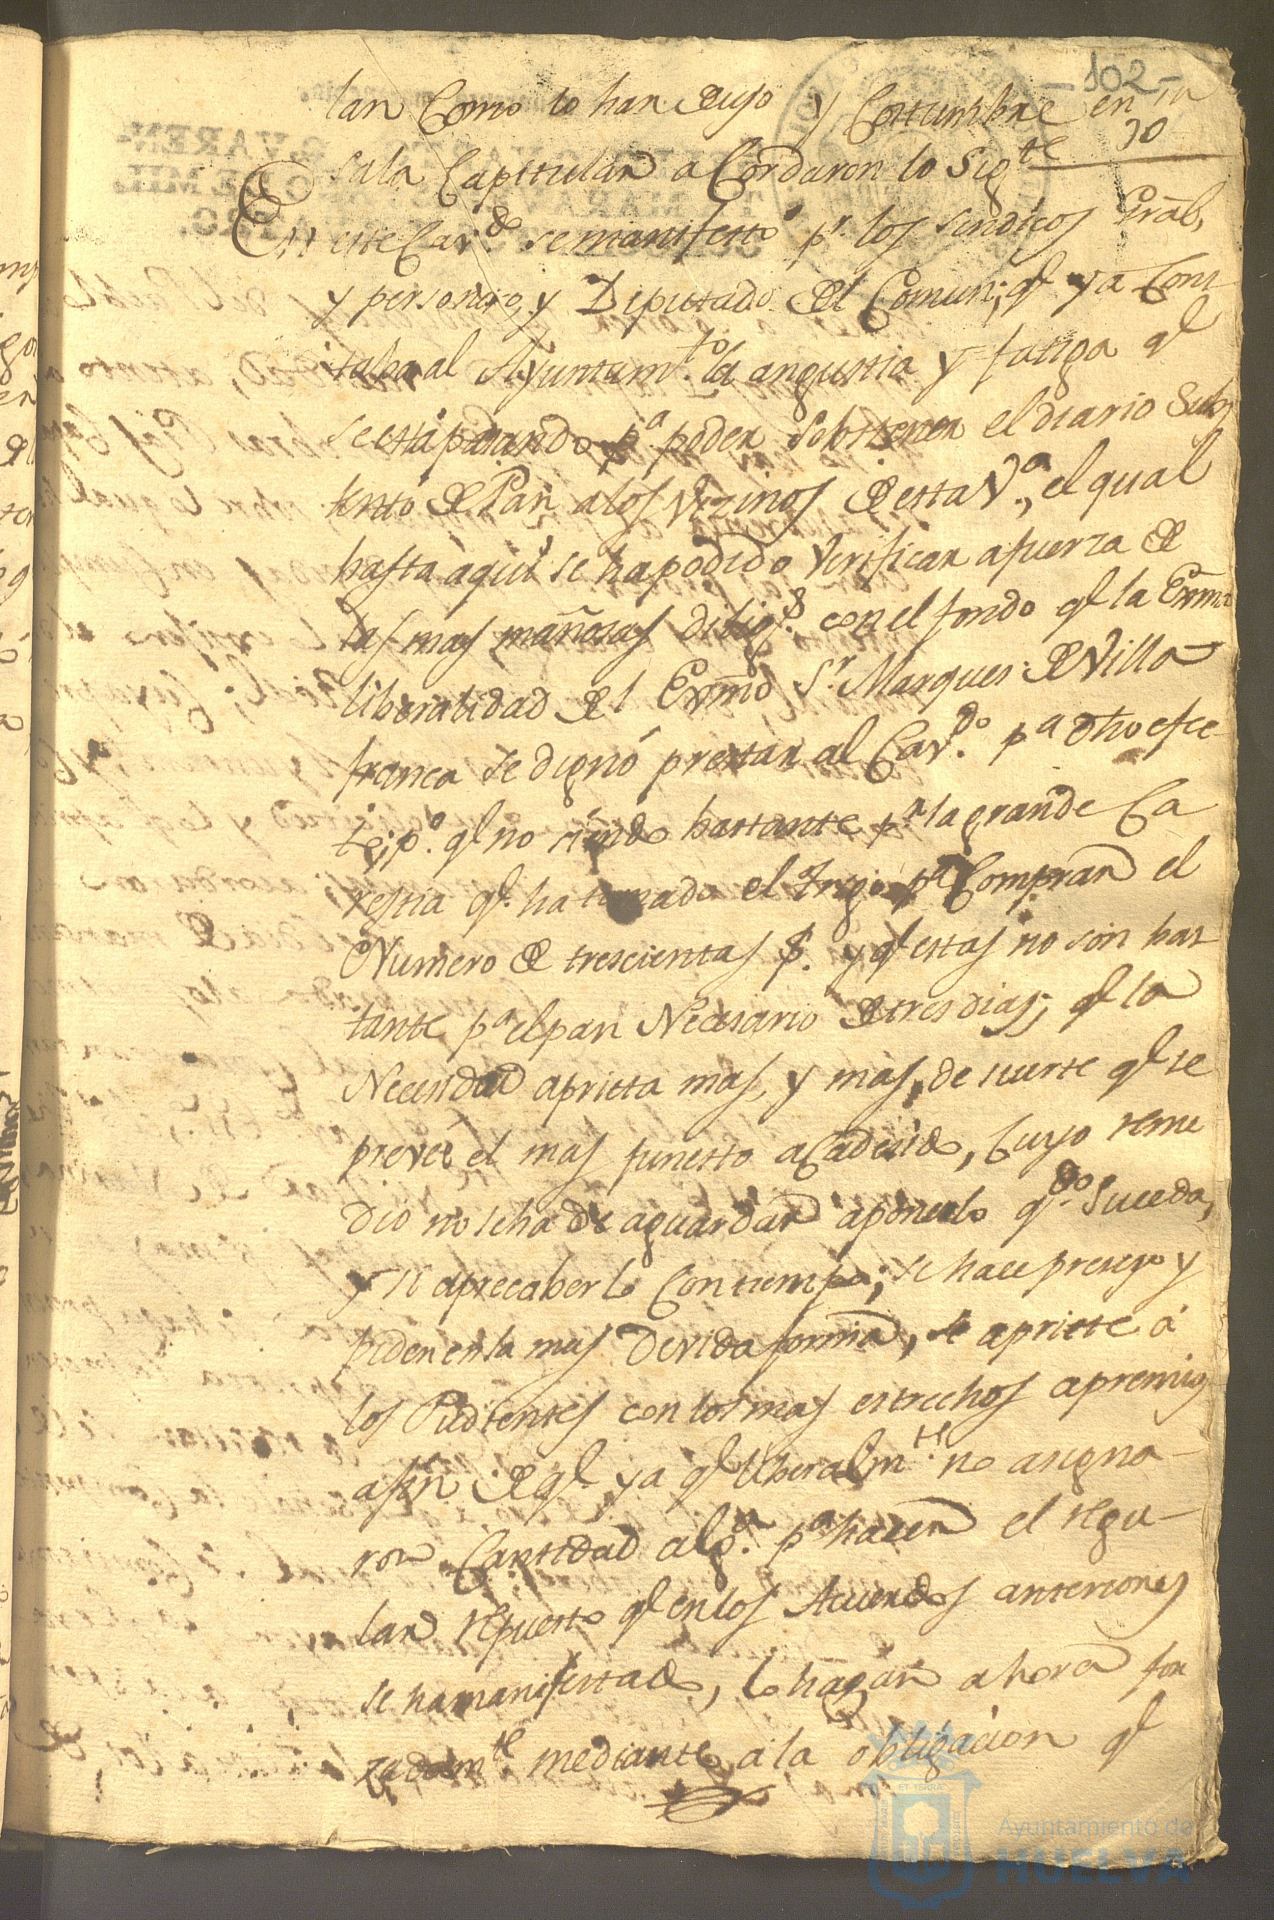 -102-
30
lar como lo han de uso y costumbre en su
sala Capitular acordaron lo sigte
En este Cavdo se manifestó pr. los sindicos Gral,
y personero, y Diputado del Comun; qe ya cons
taba al Ayuntamto. la angustia y fatiga qe
se está pasando pa. poder sobstener el diario Sus
tento de Pan a los Vezinos de esta Va., el qual
hasta aqui se ha podido verificar a fuerza de
las mas mañosas diligs. con el fondo qe la Exma
liberalidad del Exmo Sr. Marques de Villa
franca se dignó prestar al Cavdo. pa dho efec
to; po. qe no siendo bastante pr la grande Ca
restia qe. ha tomado el trigo pa Comprar el
Numero de trescientas f. y qe estas no son bas
tante pa el pan Necesario de tres dias; qe la
Necesidad aprieta mas, y mas, de suerte qe se
prevee el mas funesto acaecido, Cuyo reme
dio no se ha de aguardar aponerlo qdo. suceda,
y si aprecaberlo con tiempo; se hace preciso y
piden en la mas devida forma, se apriete á
los Pudientes con los mas estrechos apremios
a fin de qe. ya qe liberalmte. no asigna-
ron Cantidad alga. pa hacer el regu-
lar repuesto qe en los Acuerdos anteriores
se ha manifestado, lo hagan ahora for
zadamte mediante, a la obligacion qe
Ayuntamiento de
HUELVA